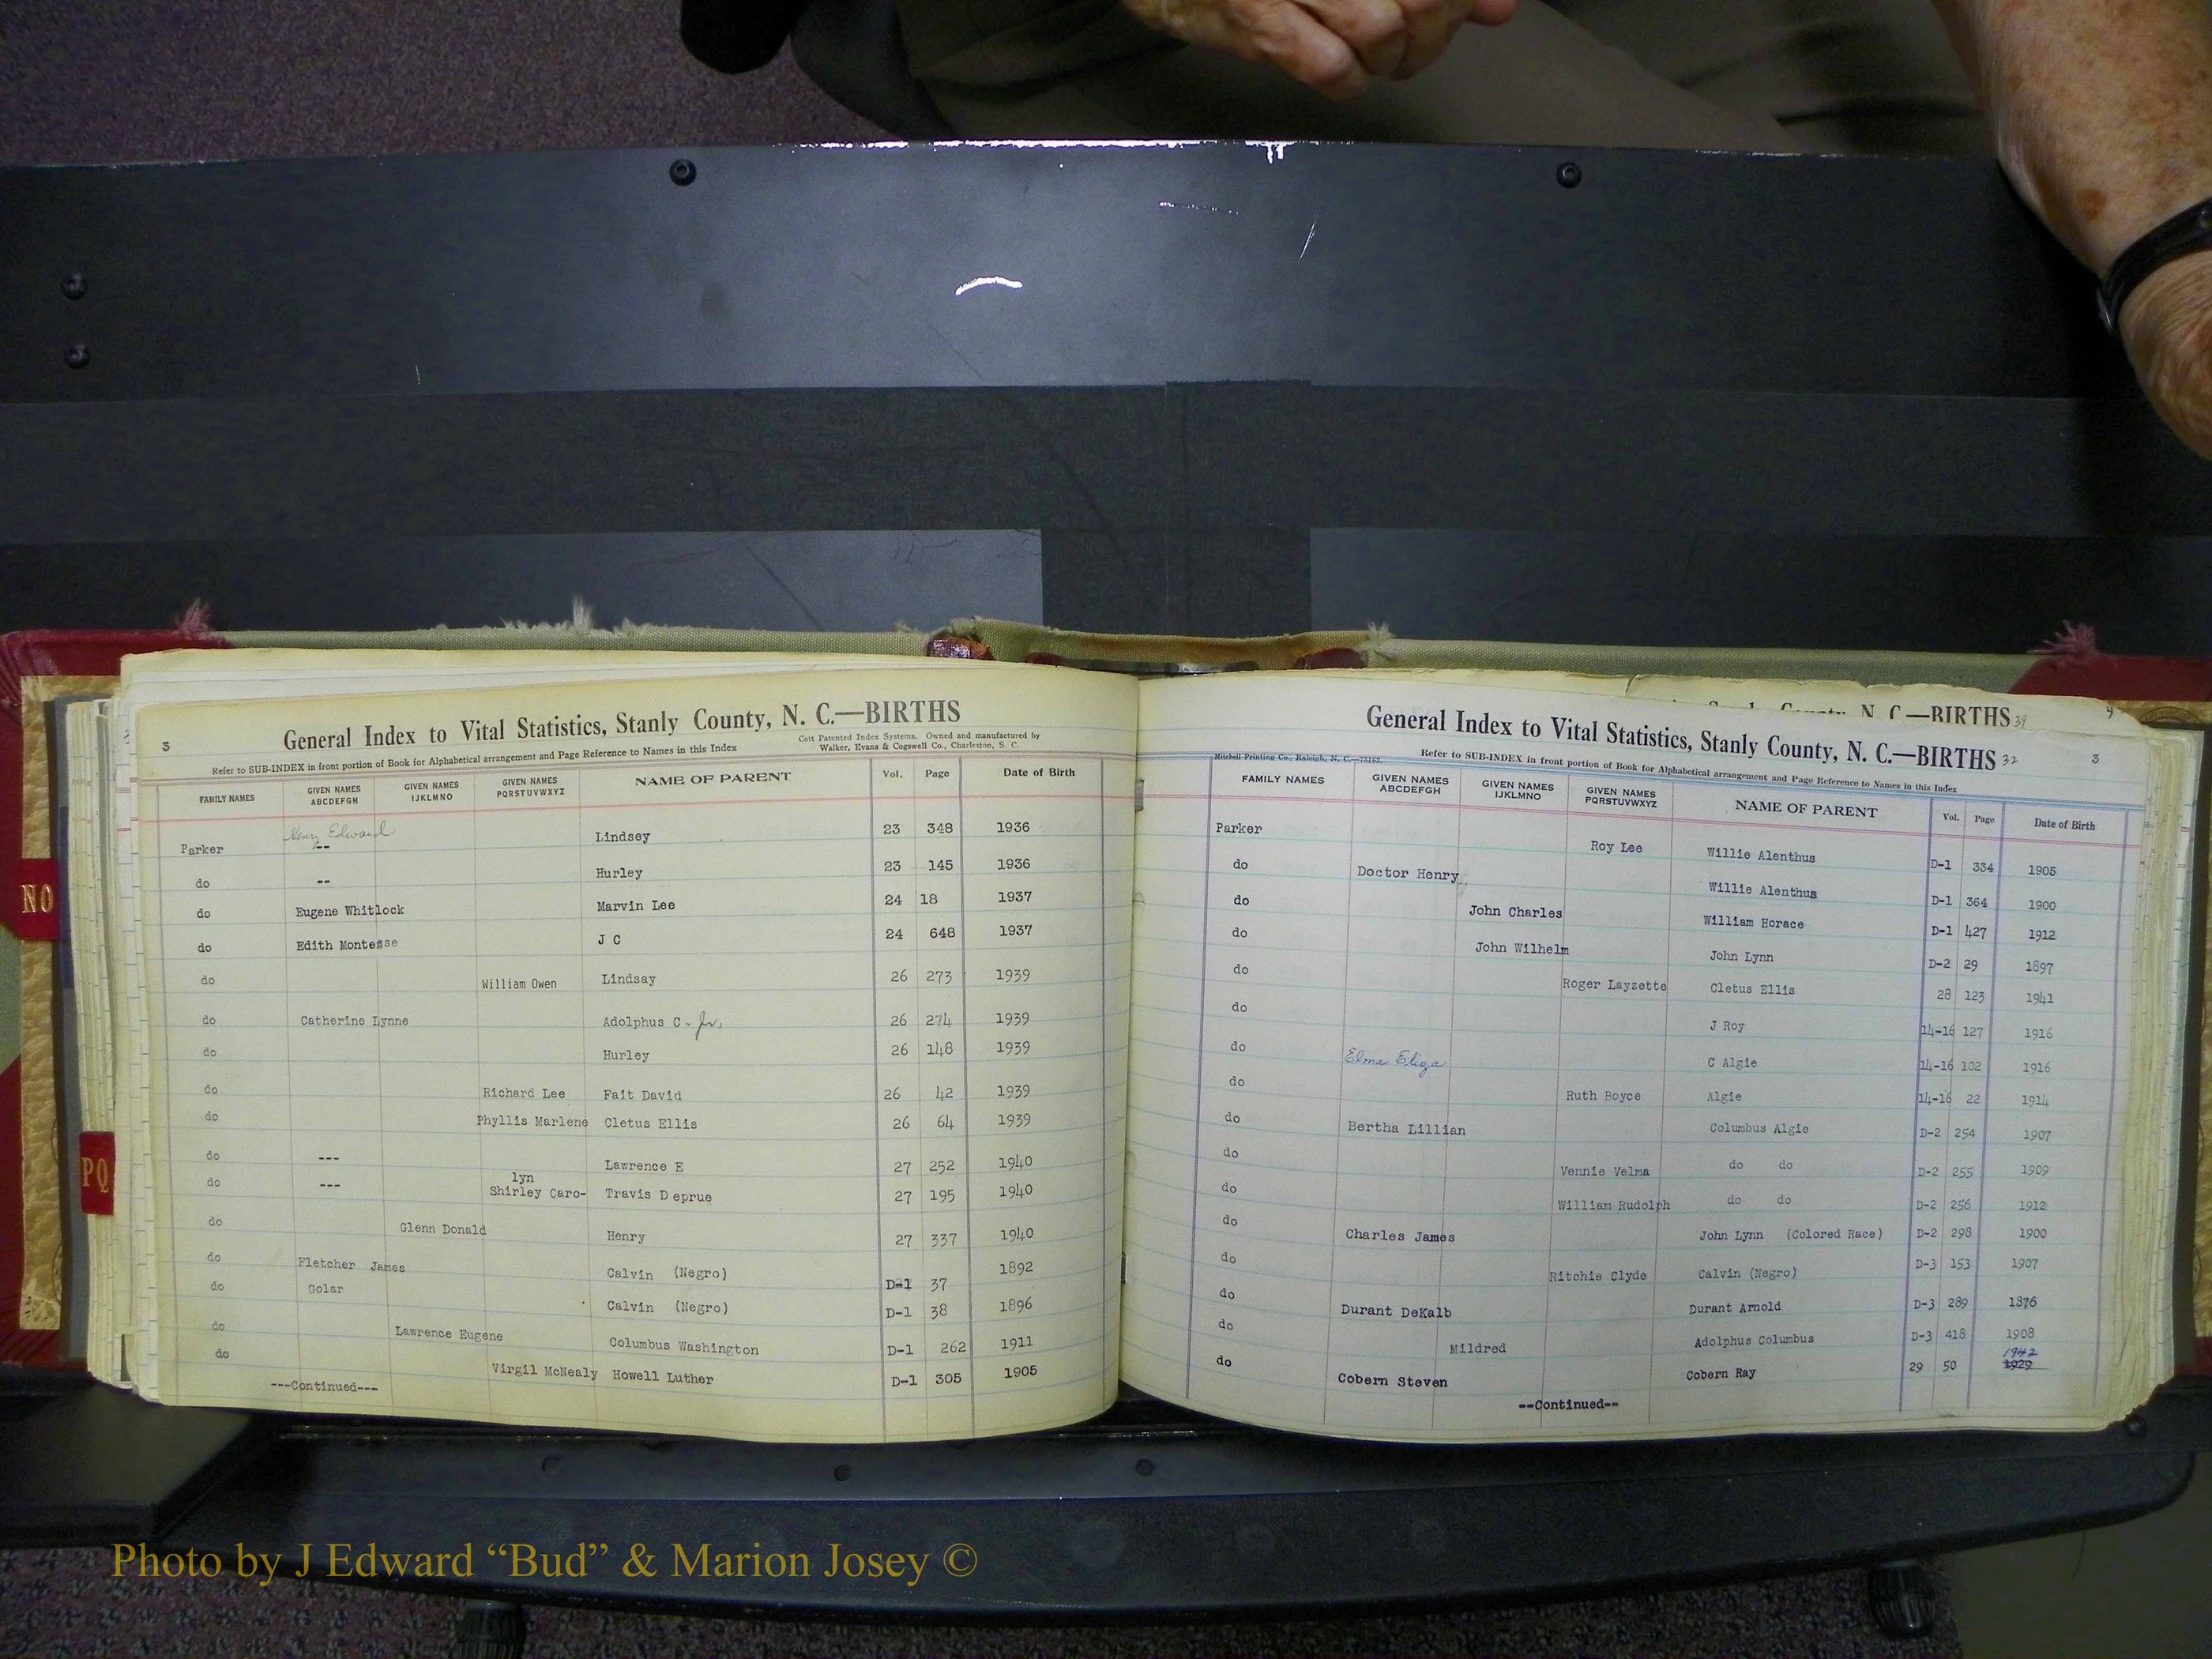 NO
PQ
3
General Index to Vital Statistics, Stanly County, N. C.—BIRTHS
Refer to SUB-INDEX in front portion of Book for Alphabetical arrangement and Page Reference to Names in this Index
Cott Patented Index Systems. Owned and manufactured by
Walker, Evans & Cogswell Co., Charleston, S. C.
FAMILY NAMES GIVEN NAMES ABCDEFGH GIVEN NAMES IJKLMNO GIVEN NAMES PQRSTUVWXYZ NAME OF PARENT Vol. Page Date of Birth
Parker Henry Edward -- Lindsey 23 348 1936
do -- Hurley 23 145 1936
do Eugene Whitlock Marvin Lee 24 18 1937
do Edith Montesse J C 24 648 1937
do William Owen Lindsay 26 273 1939
do Catherine Lynne Adolphus C - Jr. 26 274 1939
do Hurley 26 148 1939
do Richard Lee Fait David 26 42 1939
do Phyllis Marlene Cletus Ellis 26 64 1939
do --- Lawrence E 27 252 1940
do --- Shirley Caro- lyn Travis Deprue 27 195 1940
do Glenn Donald Henry 27 337 1940
do Fletcher James Calvin (Negro) D-1 37 1892
do Golar Calvin (Negro) D-1 38 1896
do Lawrence Eugene Columbus Washington D-1 262 1911
do Virgil McNealy Howell Luther D-1 305 1905
---Continued---
N. C.—BIRTHS 39
4
General Index to Vital Statistics, Stanly County, N. C.—BIRTHS 32
3
Mitchell Printing Co., Raleigh, N. C.—73162.
Refer to SUB-INDEX in front portion of Book for Alphabetical arrangement and Page Reference to Names in this Index
FAMILY NAMES GIVEN NAMES ABCDEFGH GIVEN NAMES IJKLMNO GIVEN NAMES PQRSTUVWXYZ NAME OF PARENT Vol. Page Date of Birth
Parker Roy Lee Willie Alenthus D-1 334 1905
do Doctor Henry Willie Alenthus D-1 364 1900
do John Charles William Horace D-1 427 1912
do John Wilhelm John Lynn D-2 29 1897
do Roger Layzette Cletus Ellis 28 123 1941
do J Roy 14-16 127 1916
do Elma Eliza C Algie 14-16 102 1916
do Ruth Boyce Algie 14-16 22 1914
do Bertha Lillian Columbus Algie D-2 254 1907
do Vennie Velma do do D-2 255 1909
do William Rudolph do do D-2 256 1912
do Charles James John Lynn (Colored Race) D-2 298 1900
do Ritchie Clyde Calvin (Negro) D-3 153 1907
do Durant DeKalb Durant Arnold D-3 289 1876
do Mildred Adolphus Columbus D-3 418 1908
do Cobern Steven Cobern Ray 29 50 1942 1929
--Continued--
Photo by J Edward “Bud” & Marion Josey ©